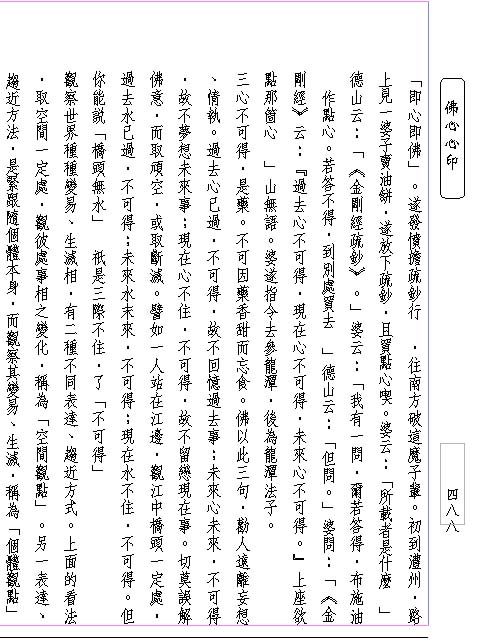 佛心心印
四八八
「即心即佛」。遂發憤擔疏鈔行，往南方破這魔子輩。初到澧州，路
上見一婆子賣油餅，遂放下疏鈔，且買點心喫。婆云：「所載者是什麼」
德山云：「《金剛經疏鈔》。」婆云：「我有一問，爾若答得，布施油
作點心。若答不得，到別處買去」德山云：「但問。」婆問：「《金
剛經》云：『過去心不可得，現在心不可得，未來心不可得。』上座欲
點那箇心」山無語。婆遂指令去參龍潭，後為龍潭法子。
三心不可得，是藥。不可因藥香甜而忘食。佛以此三句，勸人遠離妄想
、情執。過去心已過，不可得，故不回憶過去事；未來心未來，不可得
，故不夢想未來事；現在心不住，不可得，故不留戀現在事。切莫誤解
佛意，而取頑空，或取斷滅。譬如一人站在江邊，觀江中橋頭一定處，
過去水已過，不可得；未來水未來，不可得；現在水不住，不可得。但
你能說「橋頭無水」　祇是三際不住，了「不可得」
觀察世界種種變易、生滅相，有二種不同表達、趨近方式。上面的看法
，取空間一定處，觀彼處事相之變化，稱為「空間觀點」。另一表達、
趨近方法，是緊跟隨個體本身，而觀察其變易、生滅，稱為「個體觀點」